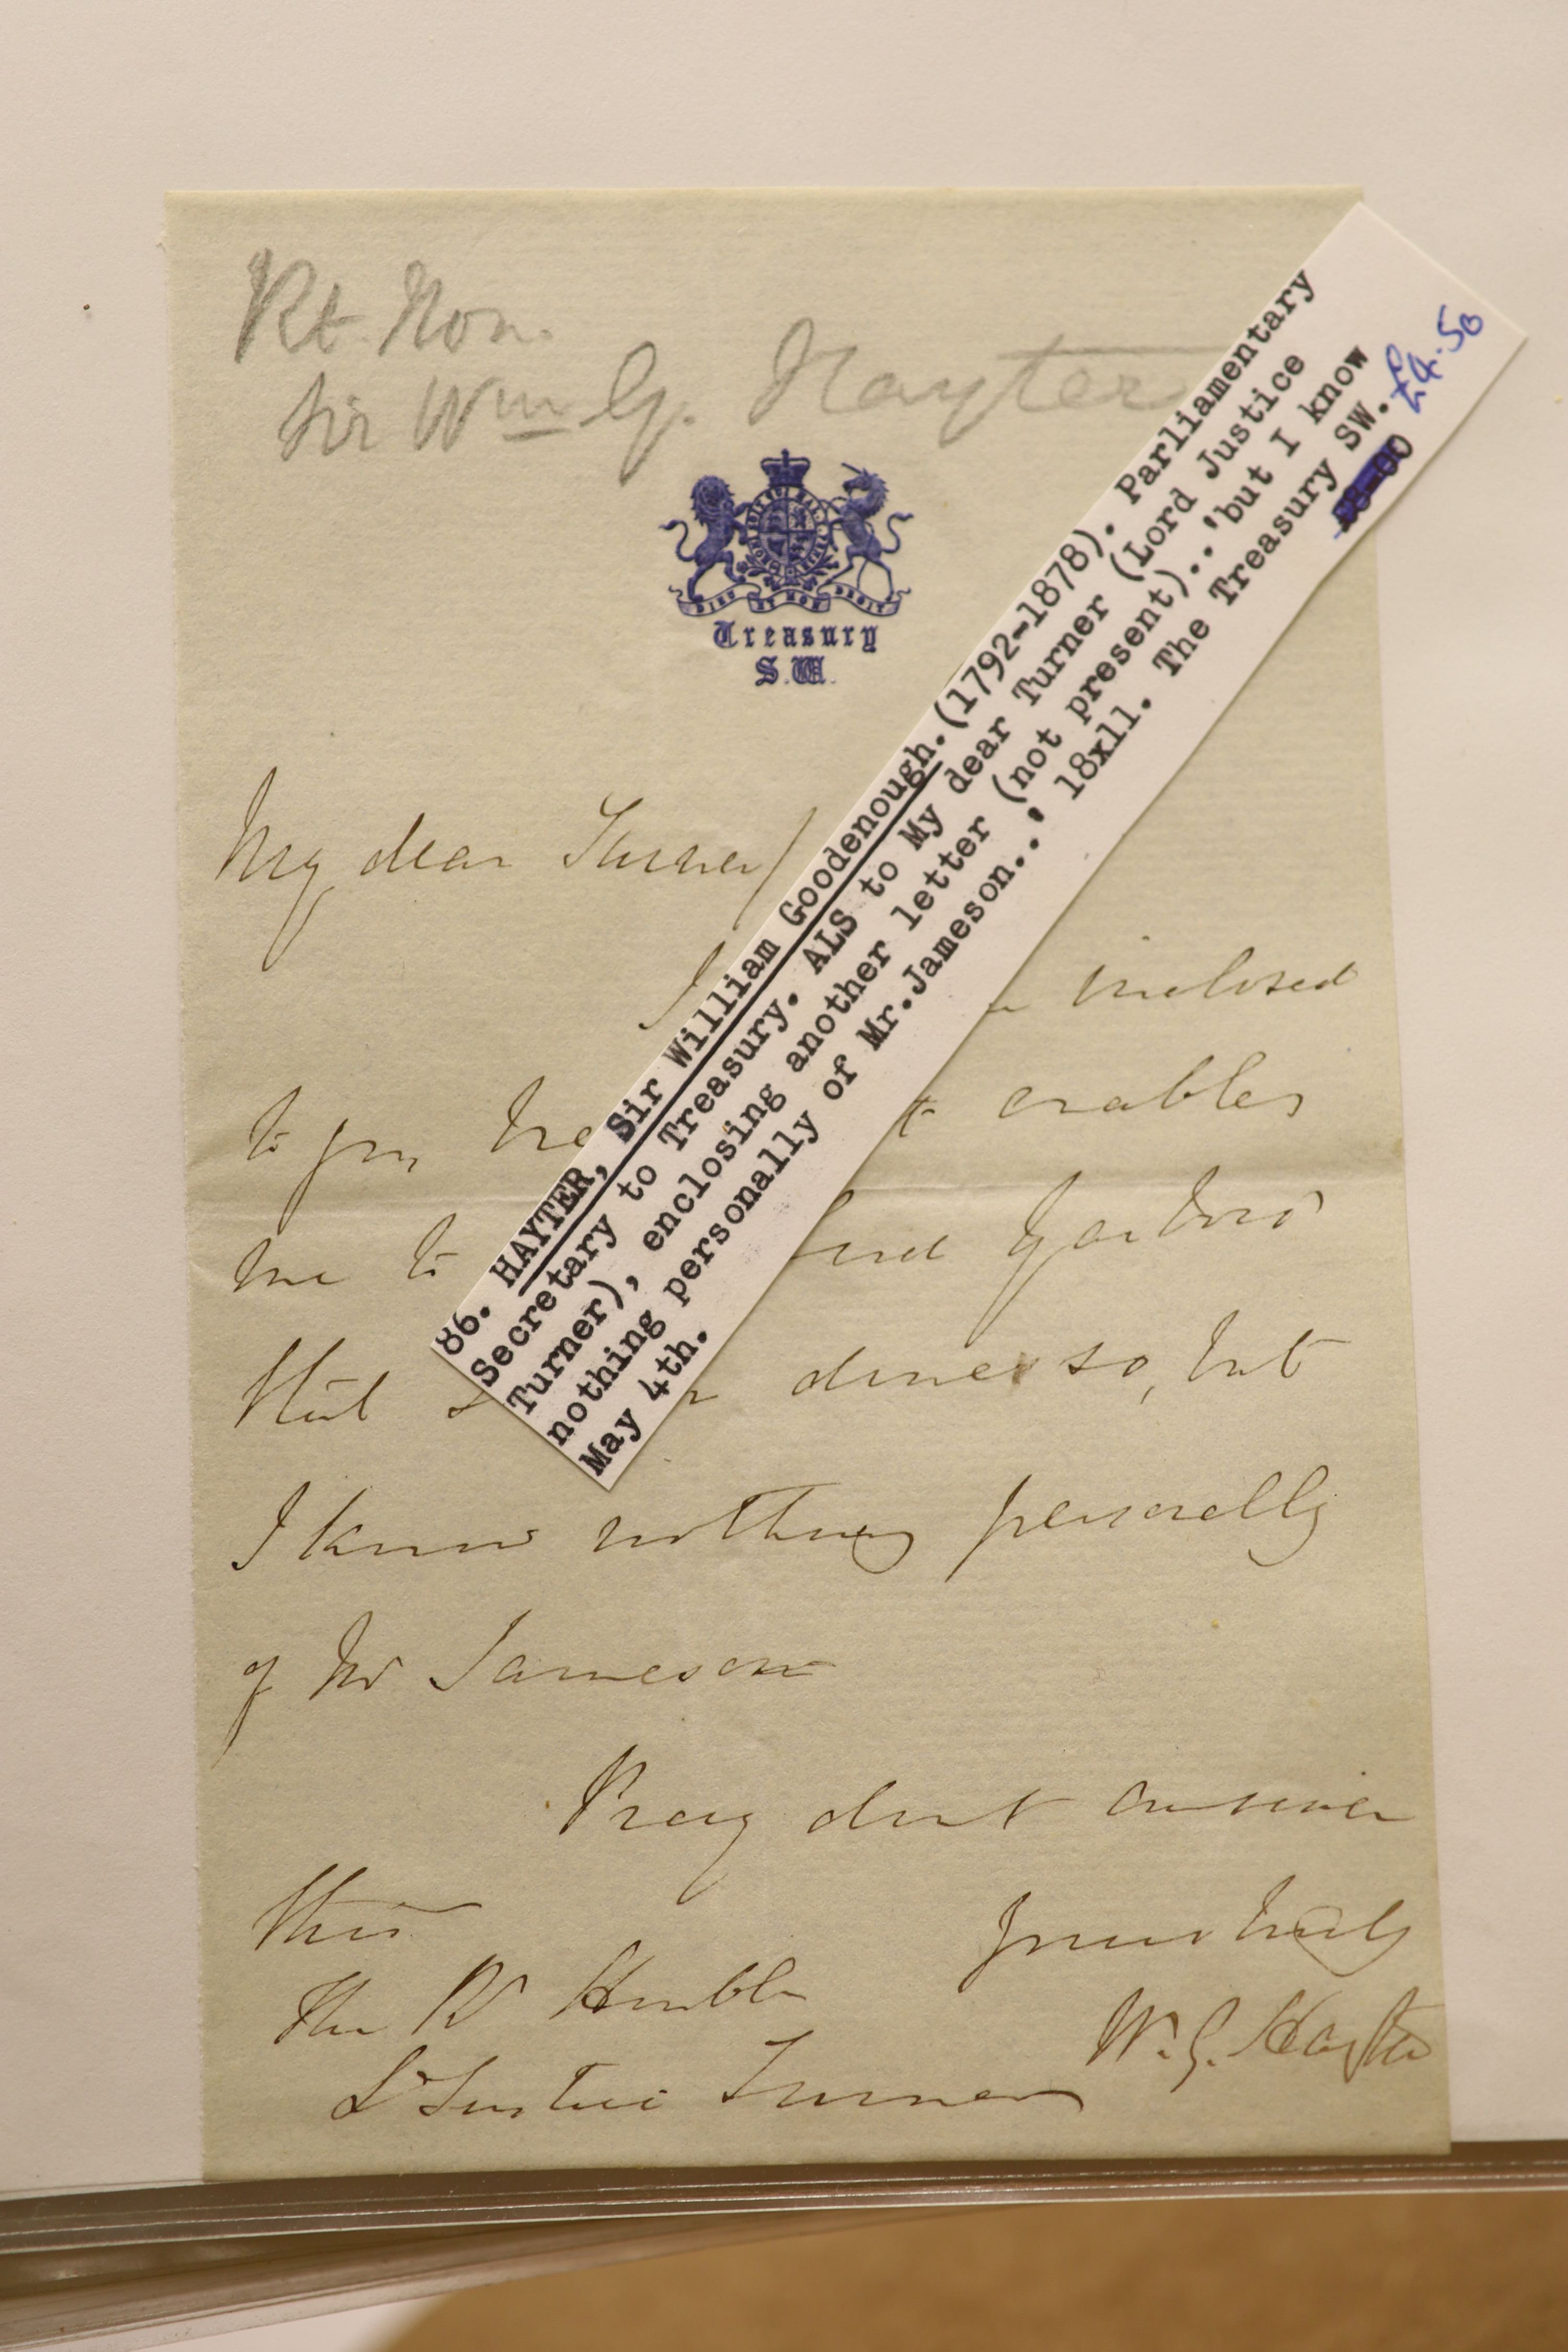 Rt. Hon.
Sir Wm G. Hayter
DIEU ET MON DROIT
Treasury
S.W.
86. HAYTER, Sir William Goodenough.(1792-1878). Parliamentary
Secretary to Treasury. ALS to My dear Turner (Lord Justice
Turner), enclosing another letter (not present)..'but I know
nothing personally of Mr.Jameson..' 18x11. The Treasury SW.
May 4th.
£4.50
My dear Turner
I inclosed
to you enables
me to
that so, but
I know nothing personally
of Mr Jameson
Pray dont answer
this
Yours truly
W. G. Hayter
The Rt Honble
Ld Justice Turner